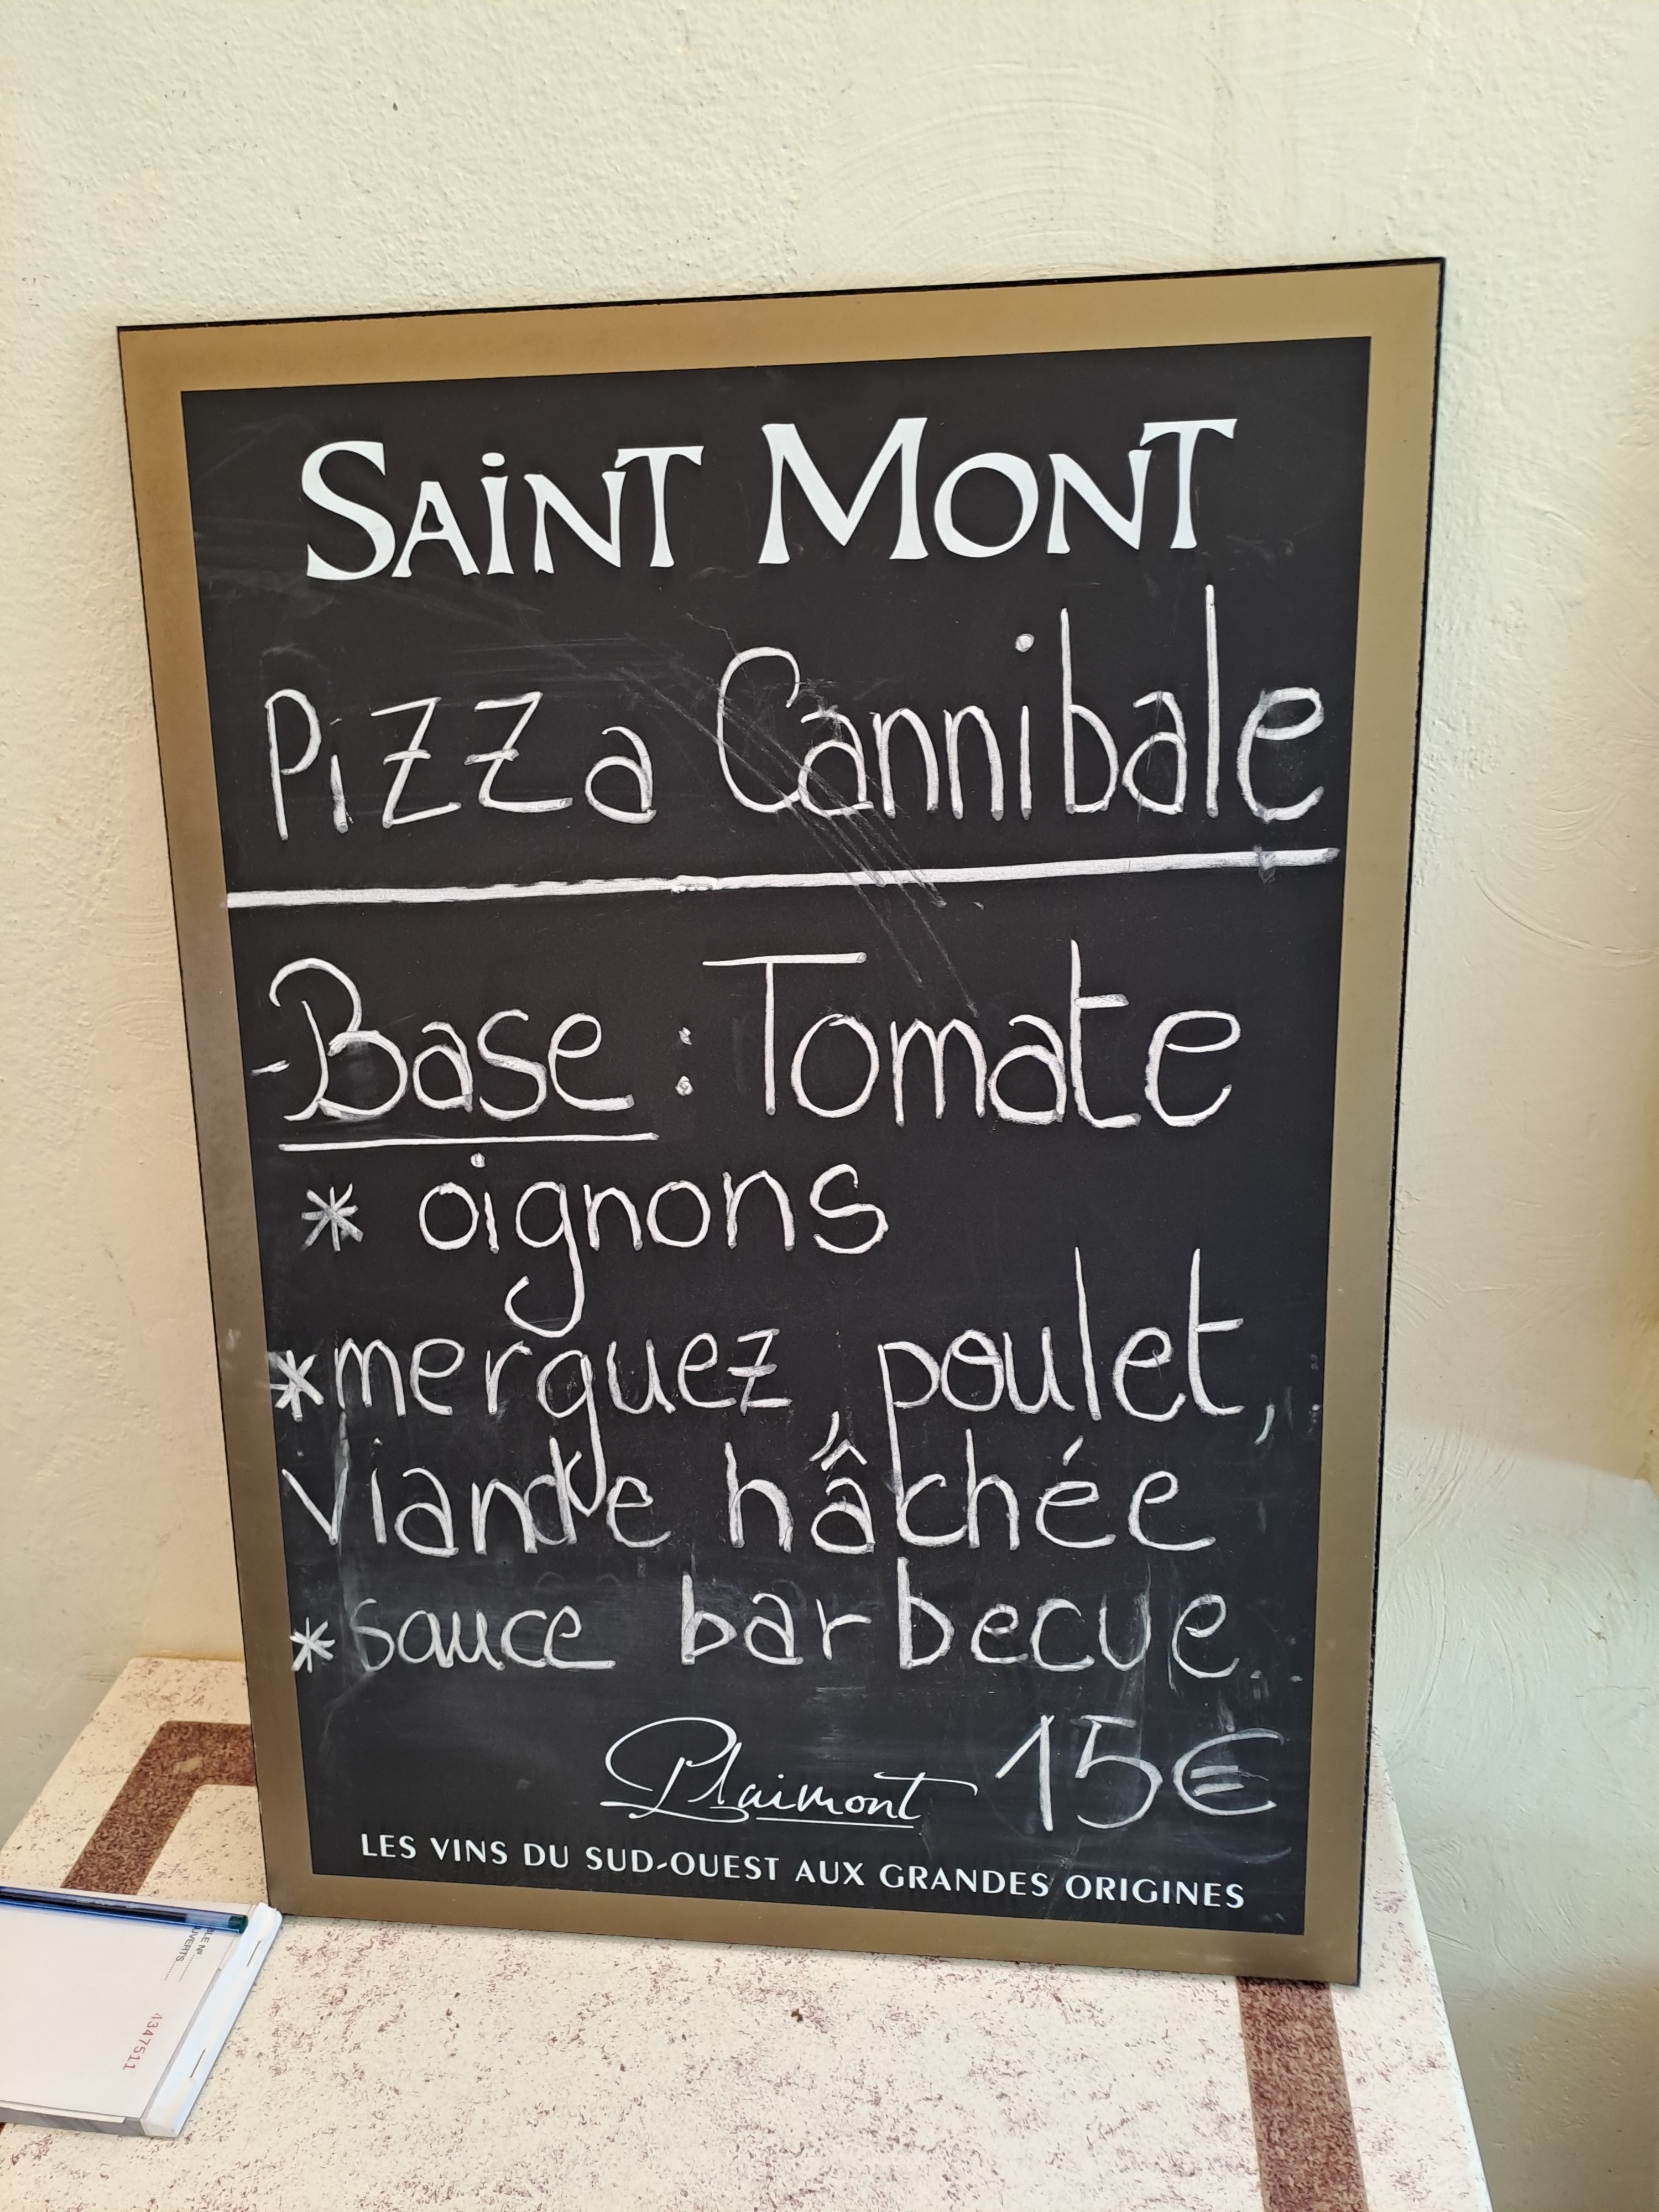 SAINT MONT
Pizza Cannibale
- Base : Tomate
* oignons
* merguez, poulet,
viande hâchée
* sauce barbecue.
15€
Plaimont
LES VINS DU SUD-OUEST AUX GRANDES ORIGINES
BLE Nº
UVERTS
4347511